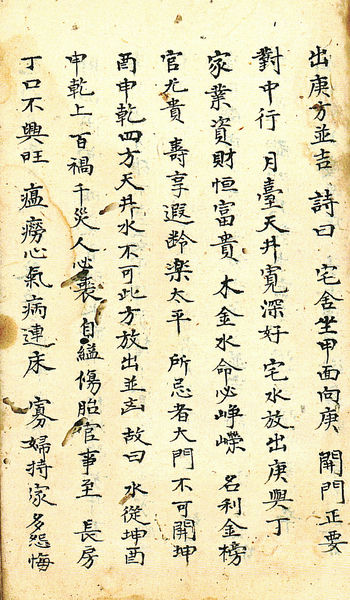 出庚方並吉 詩曰 宅舍坐甲面向庚 開門正要
對中行 月臺天井寬深好 宅水放出庚與丁
家業資財恒富貴 木金水命必崢嶸 名利金榜
官尤貴 壽享遐齡楽太平 所忌者大門不可開坤
酉申乾四方天井水不可此方放出並凶 故曰 水從坤酉
申乾上 百禍千災人必喪 自縊傷胎官事至 長房
丁口不興旺 瘟癆心氣病連床 寡婦持家多怨悔